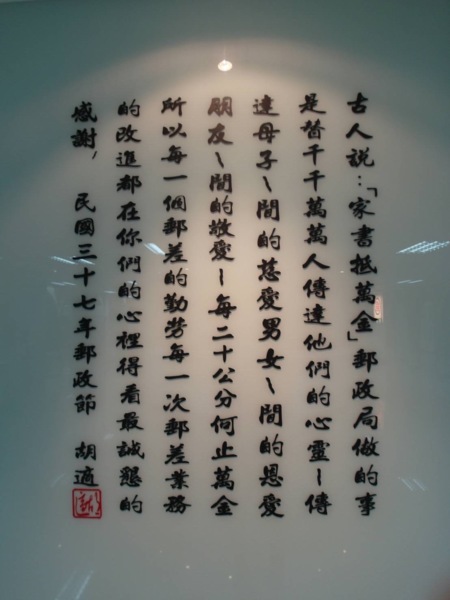 古人說：「家書抵萬金」郵政局做的事
是替千千萬萬人傳達他們的心靈～傳
達母子～間的慈愛男女～間的恩愛
朋友～間的敬愛～每二十公分何止萬金
所以每一個郵差的勤勞每一次郵差業務
的改進都在你們的心裡得看最誠懇的
感謝， 民國三十七年郵政節 胡適